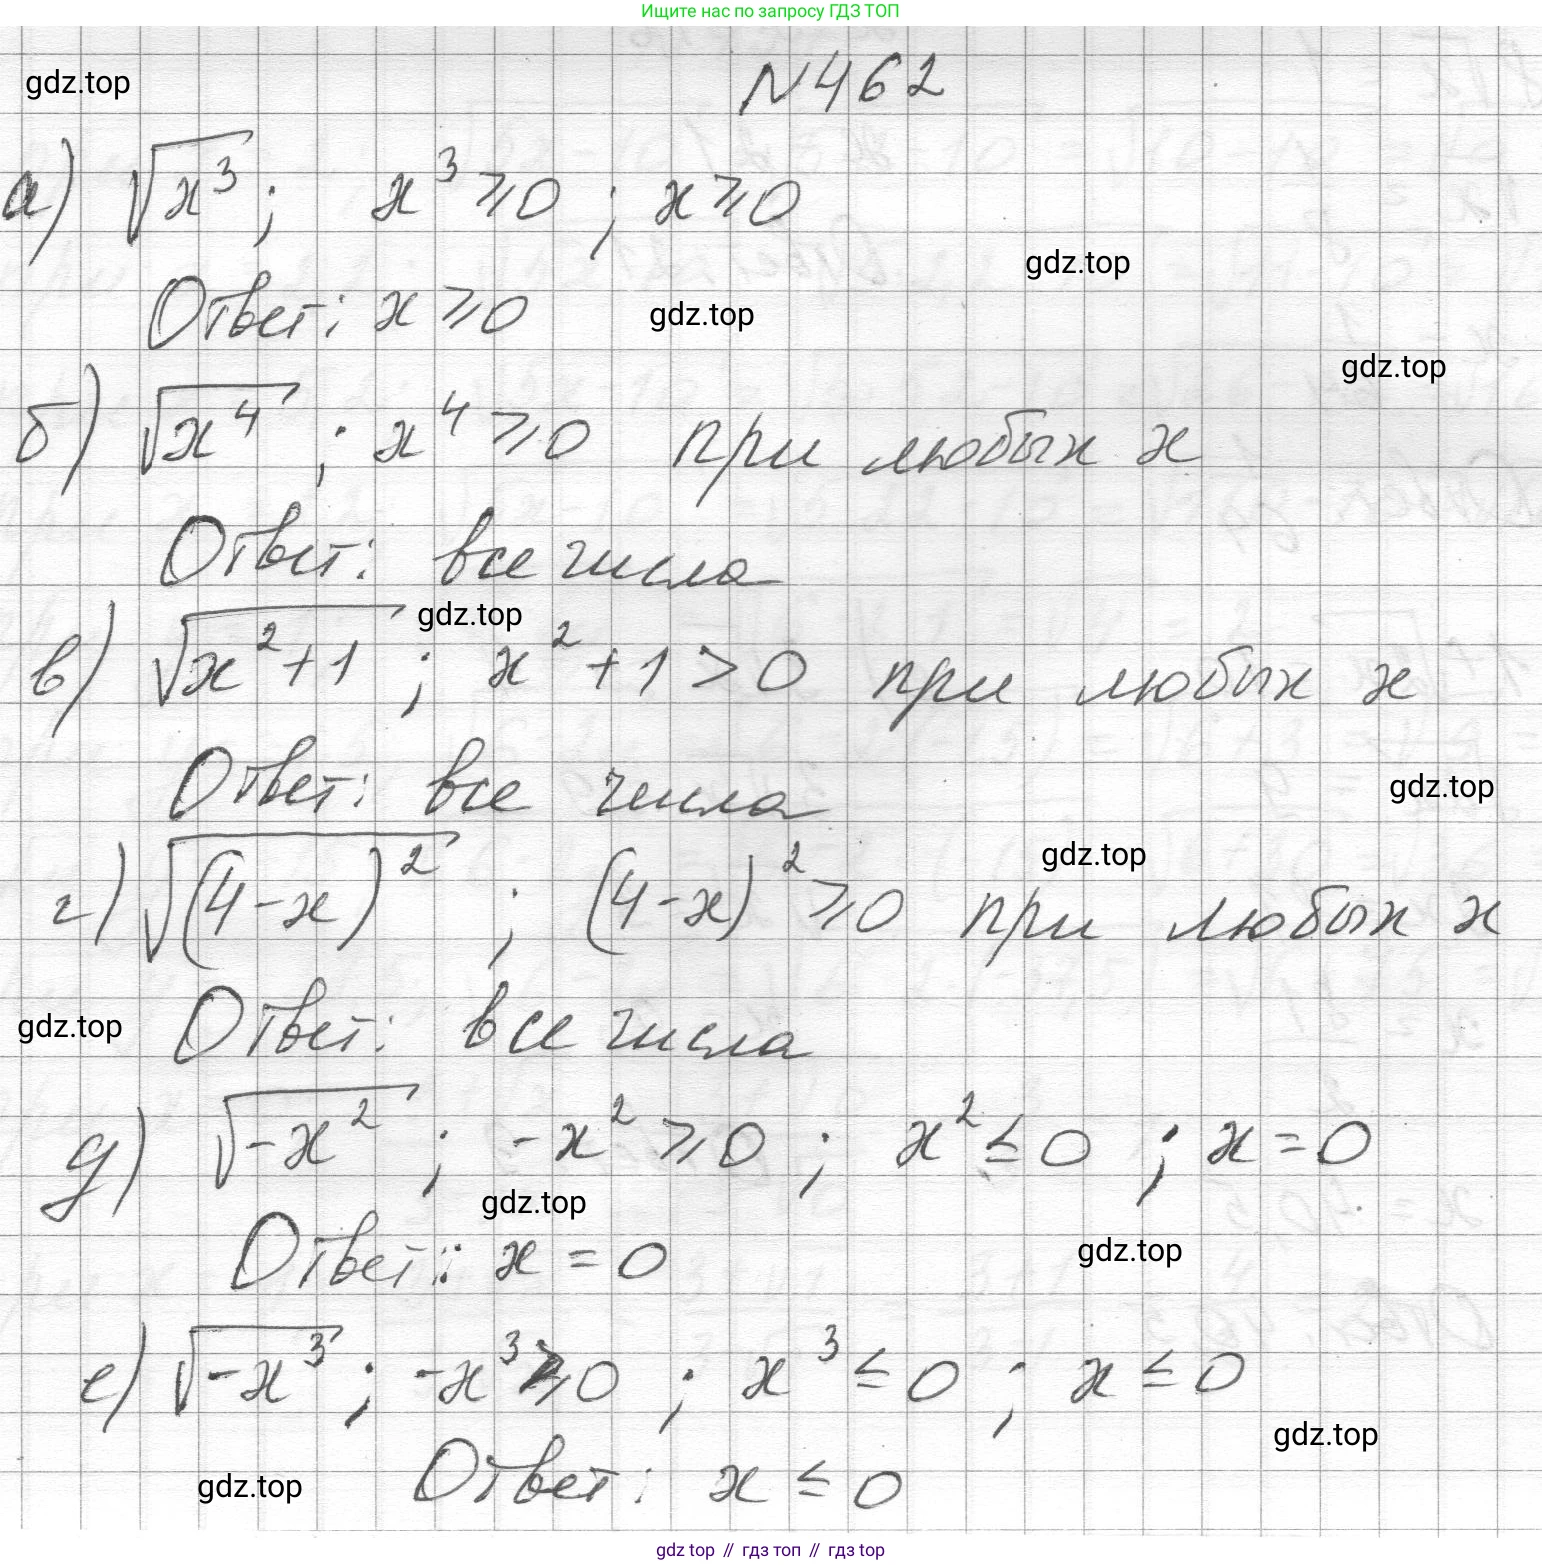 Ищите нас по запросу ГДЗ ТОП
N462
gdz.top
а) √x³; x³ ⩾ 0; x ⩾ 0
gdz.top
Ответ: x ⩾ 0
gdz.top
gdz.top
б) √x⁴; x⁴ ⩾ 0 при любых x
Ответ: все числа
gdz.top
в) √x²+1; x²+1 > 0 при любых x
Ответ: все числа
gdz.top
gdz.top
г) √(4-x)²; (4-x)² ⩾ 0 при любых x
Ответ: все числа
gdz.top
д) √-x²; -x² ⩾ 0; x² ≤ 0; x = 0
gdz.top
Ответ: x = 0
gdz.top
е) √-x³; -x³ ⩾ 0; x³ ≤ 0; x ≤ 0
gdz.top
Ответ: x ≤ 0
gdz.top
gdz top // гдз топ // гдз top